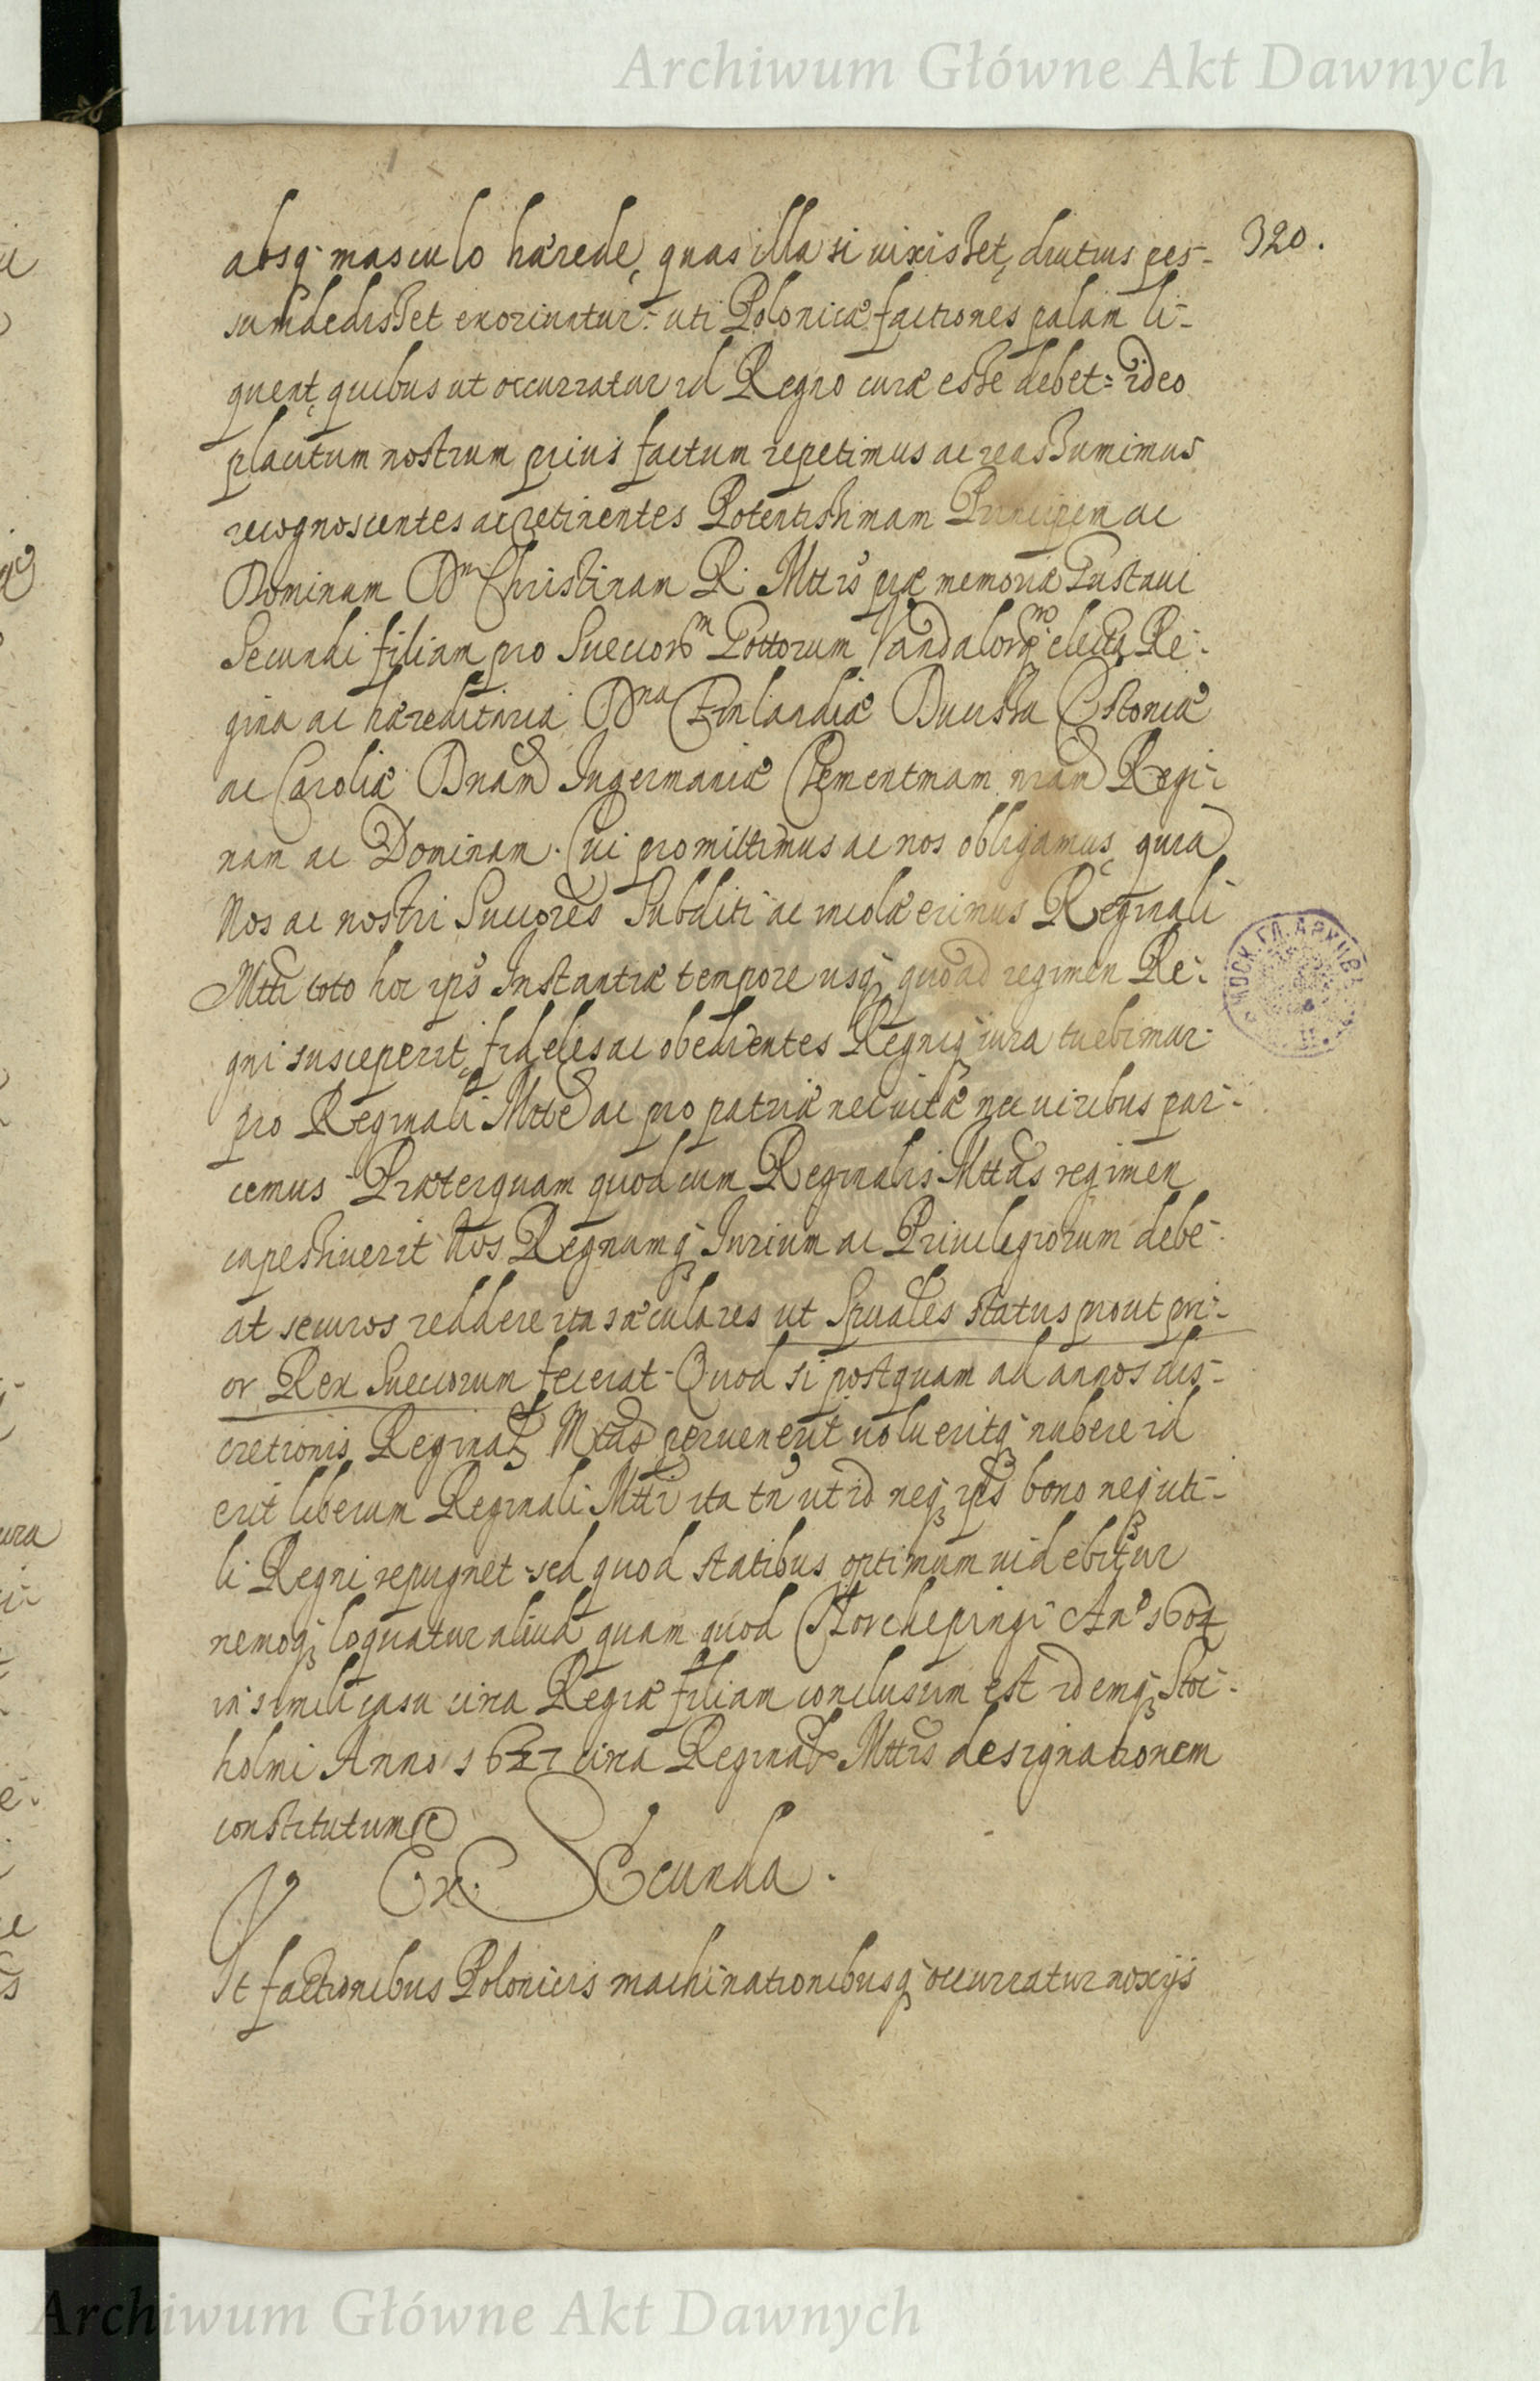 Archiwum Główne Akt Dawnych
320.
absq masculo hærede, quas illa si uixisset, diutius pes-
sumdedisset exoriantur: uti Polonicæ factiones palam li-
quent, quibus ut occurratur id Regno curæ esse debet: ideo
placitum nostrum prius factum repetimus ac reassumimus
recognoscentes ac retinentes Potentissimam Principem ac
Dominam Dnm Christinam R. Mttis piæ memoriæ Gustaui
Secundi filiam pro Sueccorm Gottorum Vandalorq electa Re-
gina ac hæreditaria Dna Finlandiæ Ducissa Estoniæ
ac Caroliæ Dnam Ingermaniæ Clementmam nram Regi-
nam ac Dominam. Cui promittimus ac nos obligamus, quia
Nos ac nostri Succores Subditi ac incolæ erimus Reginali
Mtti toto hoc ips Instantiæ tempore usq quoad regimen Re-
gni susceperit, fideles ac obedientes Regniq iura tuebimur
pro Reginali Mtte ac pro patria nec uitæ nec uiribus par-
cemus Præterquam quod cum Reginalis Mttas regimen
capessiuerit Nos Regnumq Iurium ac Priuilegiorum debe-
at securos reddere ita sæculares ut Spuales status prout pri-
or Rex Sueccorum fecerat Quod si postquam ad annos dis-
cretionis Reginal Mttas peruenerit uolueritq nubere id
erit liberum Reginali Mtti ita tn ut id neq ips bono neq uti-
li Regni repugnet sed quod statibus optimum uidebitur
nemoq loquatur aliud quam quod Norchepingi Ano 1604
in simili casu circa Regiæ filiam conclusum est idemq Stoc-
holmi Anno 1627 circa Reginal Mttis designationem
constitutum
Ex Secunda.
Ut factionibus Polonicis machinationibusq occurratur noxijs
Archiwum Główne Akt Dawnych